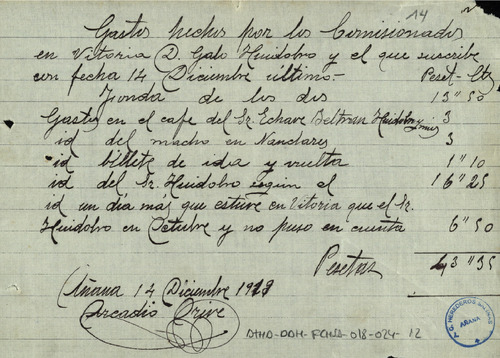 14
Gastos hechos por los Comisionados
en Vitoria D. Galo Huidobro y el que suscribe
con fecha 14 Diciembre último— Peset- Cts
Fonda de los dos 13"50
Gastos en el cafe del Sr. Echave Beltran Huidobro y mio 3
id del macho en Nanclares 3
id billete de ida y vuelta 1"10
id del Sr. Huidobro según el 16"25
id un dia más que estuve en Vitoria que el Sr.
Huidobro en Octubre y no puso en cuenta 6"50
Pesetas 43"35
Añana 14 Diciembre
Arcadio Orive
DTHD-DDH-FCHSA-018-024-12
F.G. HEREDEROS SALINAS
AÑANA